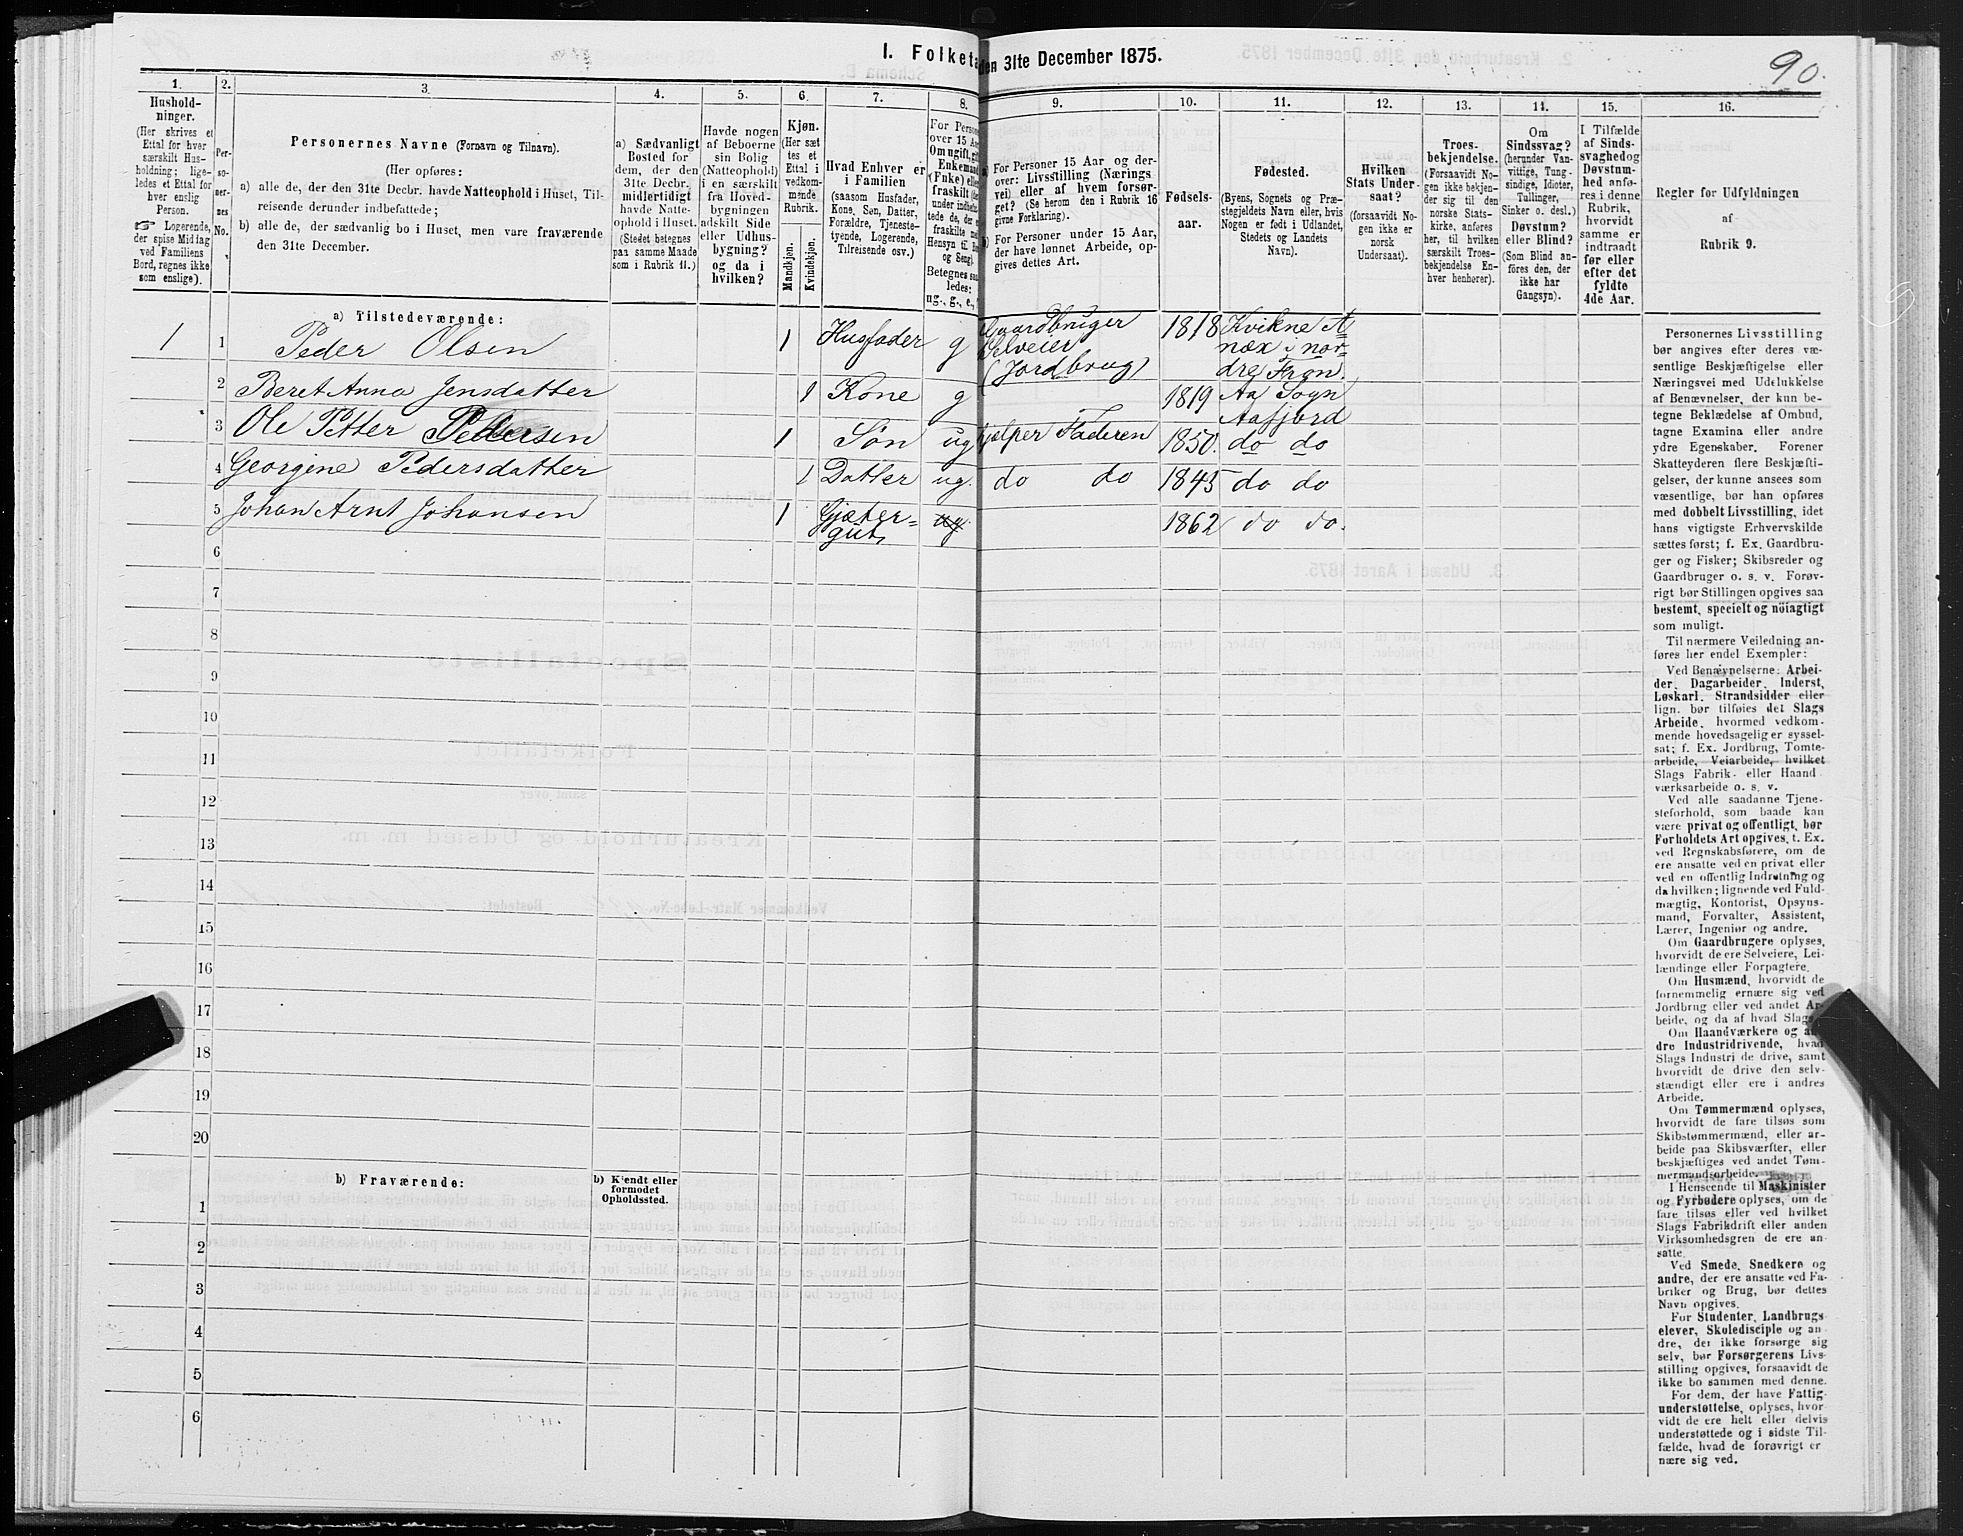 90.
I. Folketa
den 31te December 1875.
1.
2.
3.
4.
5.
6.
7.
8.
9.
10.
11.
12.
13.
14.
15.
16.
Hushold-
ninger.
(Her skrives et
Ettal for hver
særskilt Hus-
holdning; lige-
ledes et Ettal for
hver enslig
Person.
☞ Logerende,
der spise Middag
ved Familiens
Bord, regnes ikke
som enslige).
Per-
so-
ner-
nes
No.
Personernes Navne (Fornavn og Tilnavn).
(Her opføres:
a) alle de, der den 31te Decbr. havde Natteophold i Huset, Til-
reisende derunder indbefattede;
b) alle de, der sædvanlig bo i Huset, men vare fraværende
den 31te December.
a) Sædvanligt
Bosted for
dem, der den
31te Decbr.
midlertidigt
havde Natte-
ophold i Huset.
(Stedet betegnes
paa samme Maade
som i Rubrik 11.)
Havde nogen
af Beboerne
sin Bolig
(Natteophold)
i en særskilt
fra Hoved-
bygningen
adskilt Side
eller Udhus-
bygning?
og da i
hvilken?
Kjøn.
(Her sæt
tes et
Ettal i
vedkom-
mende
Rubrik.
Mandkjøn.
Kvindekjøn.
Hvad Enhver er
i Familien
(saasom Husfader,
Kone, Søn, Datter,
Forældre, Tjeneste-
tyende, Logerende,
Tilreisende osv.)
For Person
over 15 Aa
Om ugift, gift
Enkemand
(Enke) elle
fraskilt (de
under indbefat
tede de, der e
fraskilte me
Hensyn til Bor
og Seng).
Betegnes saa
ledes:
ug., g., e.,
a) For Personer 15 Aar og der-
over: Livsstilling (Nærings
vei) eller af hvem forsør-
get? (Se herom den i Rubrik 16
givne Forklaring).
b) For Personer under 15 Aar,
der have lønnet Arbeide, op-
gives dettes Art.
Fødsels-
aar.
Fødested.
(Byens, Sognets og Præ-
stegjeldets Navn eller, hvis
Nogen er født i Udlandet,
Stedets og Landets
Navn).
Hvilken
Stats Under-
saat?
(forsaavidt No-
gen ikke er
norsk
Undersaat).
Troes-
bekjendelse.
(Forsaavidt No-
gen ikke bekjen-
der sig til den
norske Stats-
kirke, anføres
her, til hvilken
særskilt Troes-
bekjendelse En-
hver henhører).
Om
Sindssvag?
(herunder Van-
vittige, Tung-
sindige, Idioter,
Tullinger,
Sinker o. desl.)
Døvstum?
eller Blind?
(Som Blind an-
føres den, der
ikke har
Gangsyn).
I Tilfælde
af Sinds-
svaghedog
Døvstum-
hed anfø-
res i denne
Rubrik,
hvorvidt
samme er
indtraadt
før eller
efter det
fyldte
4de Aar.
Regler for Udfyldningen
af
Rubrik 9.
a) Tilstedeværende:
1 1 Peder Olsen 1 Husfader g Gaardbruger Selveier (Jordbrug) 1818 Kvikne A=
nex i nor-
dre Fron.
2 Beret Anna Jensdatter 1 Kone g 1819 Aa Sogn
Aafjord
3 Ole Petter Pettersen 1 Søn ug hjælper Faderen 1850. do do
4 Georgine Pedersdatter 1 Datter ug. do do 1845 do do
5 Johan Arnt Johansen 1 Gjæter-
gut ug 1862 do do.
6
7
8
9
10
11
12
13
14
15
16
17
18
19
20
b) Fraværende:
b) Kjendt eller
formodet
Opholdssted.
1
2
3
4
5
6
Personernes Livsstilling
bør angives efter deres væ-
sentlige Beskjæftigelse eller
Næringsvei med Udelukkelse
af Benævnelser, der kun be-
tegne Beklædelse af Ombud,
tagne Examina eller andre
ydre Egenskaber. Forener
Skatteyderen flere Beskjæfti-
gelser, der kunne ansees som
væsentlige, bør han opføres
med dobbelt Livsstilling, idet
hans vigtigste Erhvervskilde
sættes først; f. Ex. Gaardbru-
ger og Fisker; Skibsreder og
Gaardbruger o. s. v. Forøv-
rigt bør Stillingen opgives saa
bestemt, specielt og nöiagtigt
som muligt.
Til nærmere Veiledning an-
føres her endel Exempler:
Ved Benævnelserne: Arbei-
der, Dagarbeider, Inderst,
Løskarl, Strandsidder eller
lign. bør tilføies det Slags
Arbeide, hvormed vedkom-
mende hovedsagelig er syssel-
sat; f. Ex. Jordbrug, Tomte-
arbeide, Veiarbeide, hvilket
Slags Fabrik- eller Haand
værksarbeide o. s. v.
Ved alle saadanne Tjene-
steforhold, som baade kan
være privat og offentligt, bør
Forholdets Art opgives, t. Ex.
ved Regnskabsførere, om de
ere ansatte ved en privat eller
ved en offentlig Indretning og
da hvilken; lignende ved Fuld-
mægtig, Kontorist, Opsyns-
mand, Forvalter, Assistent,
Lærer, Ingeniør og andre.
Om Gaardbrugere oplyses,
hvorvidt de ere Selveiere, Lei-
lændinge eller Forpagtere.
Om Husmænd, hvorvidt de
fornemmelig ernære sig ved
Jordbrug eller ved andet Ar-
beide, og da af hvad Slags.
Om Haandværkere og an-
dre Industridrivende, hvad
Slags Industri de drive, samt
hvorvidt de drive den selv-
stændigt eller ere i andres
Arbeide.
Om Tømmermænd oplyses,
hvorvidt de fare tilsøs som
Skibstømmermænd, eller ar-
beide paa Skibsværfter, eller
beskjæftiges ved andet Tøm-
mermandsarbeide.
I Henseende til Maskinister
og Fyrbødere oplyses, om de
fare tilsøs eller ved hvilket
Slags Fabrikdrift eller anden
Virksomhedsgren de ere an-
satte.
Ved Smede, Snedkere og
andre, der ere ansatte ved Fa-
briker og Brug, bør dettes
Navn opgives.
For Studenter, Landbrugs
elever, Skoledisciple og an
dre, der ikke forsørge sig
selv, bør Forsørgerens Livs-
stilling opgives, forsaavidt de
ikke bo sammen med denne.
For dem, der have Fattig-
understøttelse, oplyses, hvor-
vidt de ere helt eller delvis
understøttede og i sidste Til-
fælde, hvad de forøvrigt er
nære sig ved.